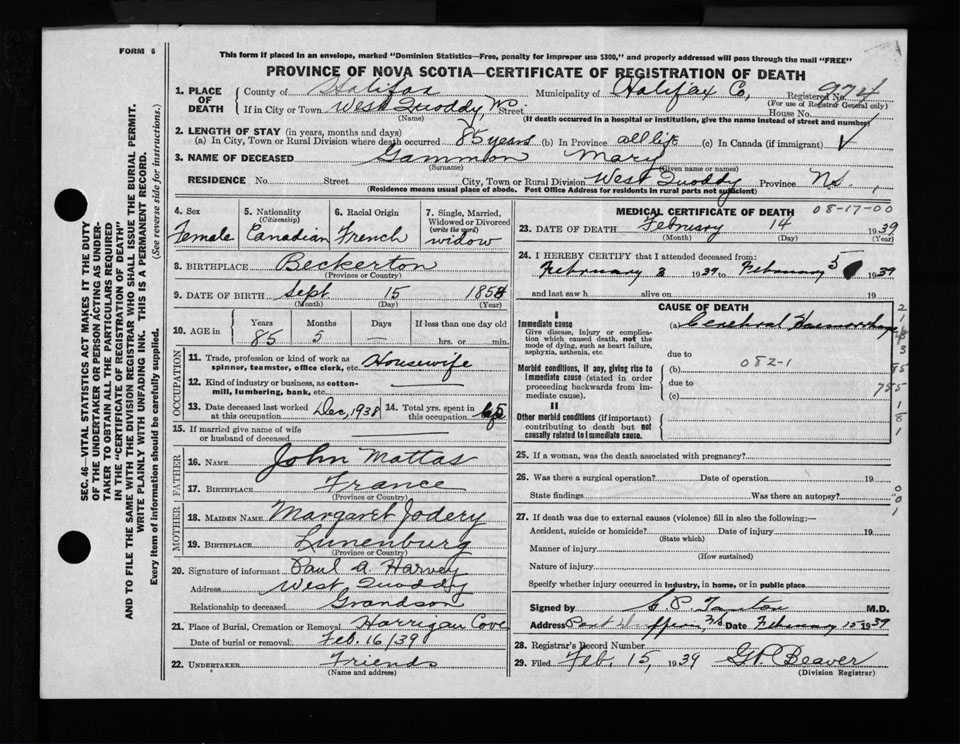 FORM 6
This form if placed in an envelope, marked "Dominion Statistics—Free, penalty for improper use $300," and properly addressed will pass through the mail "FREE"
PROVINCE OF NOVA SCOTIA—CERTIFICATE OF REGISTRATION OF DEATH
1. PLACE OF DEATH County of Halifax Municipality of Halifax Co, Registered No. 974
(For use of Registrar General only)
If in City or Town West Quoddy, Street House No.
(Name) (If death occurred in a hospital or institution, give the name instead of street and number)
2. LENGTH OF STAY (in years, months and days)
(a) In City, Town or Rural Division where death occurred 85 years (b) In Province all life (c) In Canada (if immigrant)
3. NAME OF DECEASED Gammon Mary
(Surname) (Given name or names)
RESIDENCE No. Street City, Town or Rural Division West Quoddy Province Ns.
(Residence means usual place of abode. Post Office Address for residents in rural parts not sufficient)
4. Sex Female
5. Nationality (Citizenship) Canadian
6. Racial Origin French
7. Single, Married, Widowed or Divorced (write the word) widow
8. BIRTHPLACE Beckerton
(Province or Country)
9. DATE OF BIRTH Sept 15 185
(Month) (Day) (Year)
10. AGE in Years Months Days If less than one day old
85 5 — hrs. or min.
OCCUPATION
11. Trade, profession or kind of work as spinner, teamster, office clerk, etc. Housewife
12. Kind of industry or business, as cotton-mill, lumbering, bank, etc.
13. Date deceased last worked at this occupation Dec, 1938
14. Total yrs. spent in this occupation 65
15. If married give name of wife or husband of deceased
FATHER
16. NAME John Mattas
17. BIRTHPLACE France
(Province or Country)
MOTHER
18. MAIDEN NAME Margaret Jodery
19. BIRTHPLACE Lunenburg
(Province or Country)
20. Signature of informant Paul A. Harvey
Address West Quoddy
Relationship to deceased Grandson
21. Place of Burial, Cremation or Removal Harrigan Cove
Date of burial or removal Feb. 16/39
22. UNDERTAKER Friends
(Name and address)
MEDICAL CERTIFICATE OF DEATH 08-17-00
23. DATE OF DEATH February 14 1939
(Month) (Day) (Year)
24. I HEREBY CERTIFY that I attended deceased from:
February 3 1939 to February 5 1939
and last saw h alive on 19
CAUSE OF DEATH
I
Immediate cause (a) Cerebral Haemorrhage
Give disease, injury or complication which caused death, not the mode of dying, such as heart failure, asphyxia, asthenia, etc
due to
(b) 082-1
Morbid conditions, if any, giving rise to immediate cause (stated in order proceeding backwards from immediate cause).
due to
(c)
II
Other morbid conditions (if important) contributing to death but not causally related to immediate cause.
785
25. If a woman, was the death associated with pregnancy?
26. Was there a surgical operation? Date of operation 19
State findings Was there an autopsy?
27. If death was due to external causes (violence) fill in also the following:—
Accident, suicide or homicide? Date of injury 19
(State which)
Manner of injury
(How sustained)
Nature of injury
Specify whether injury occurred in industry, in home, or in public place
Signed by M.D.
Address Port Date February 15 1939
28. Registrar's Record Number
29. Filed Feb. 15, 1939 Beaver
(Division Registrar)
SEC. 46—VITAL STATISTICS ACT MAKES IT THE DUTY
OF THE UNDERTAKER OR PERSON ACTING AS UNDERTAKER TO OBTAIN ALL THE PARTICULARS REQUIRED
IN THE "CERTIFICATE OF REGISTRATION OF DEATH"
AND TO FILE THE SAME WITH THE DIVISION REGISTRAR WHO SHALL ISSUE THE BURIAL PERMIT.
WRITE PLAINLY WITH UNFADING INK. THIS IS A PERMANENT RECORD.
Every item of information should be carefully supplied. (See reverse side for instructions.)